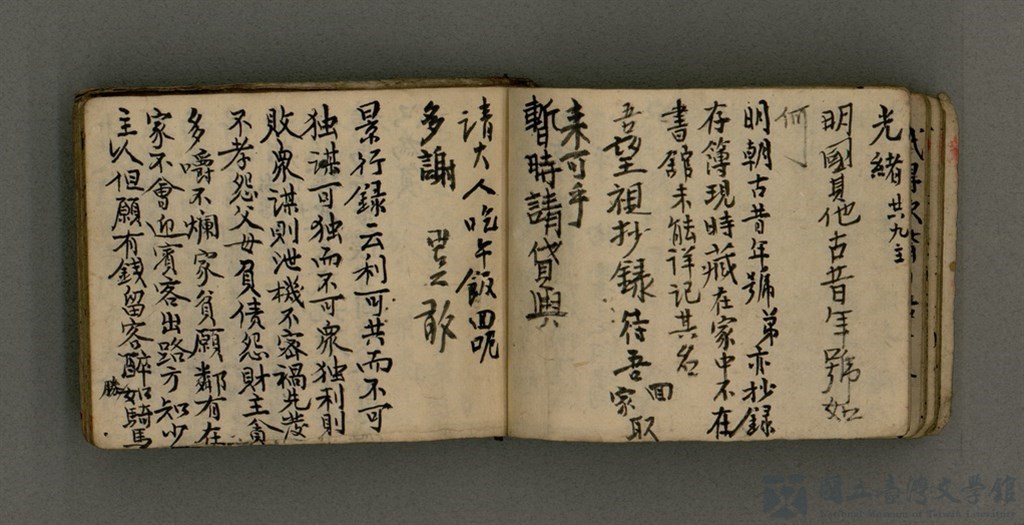 光緒廿九主
明國見他古昔年號如
何
明朝古昔年號弟亦抄録
存簿現時藏在家中不在
書舘未能詳記其名
吾望祖抄録待吾家回取
来可乎
暫時請貸與
請大人吃午飯回呢
多謝 豈敢
景行録云利可共而不可
独謀可独而不可衆独利則
敗衆謀則泄機不密禍先發
不孝怨父母負债怨財主貪
多嚼不爛家貧願鄰有在
家不會迎賓客出路方知少
主人但願有錢留客醉勝如騎馬
國立臺灣文學館
National Museum of Taiwan Literature